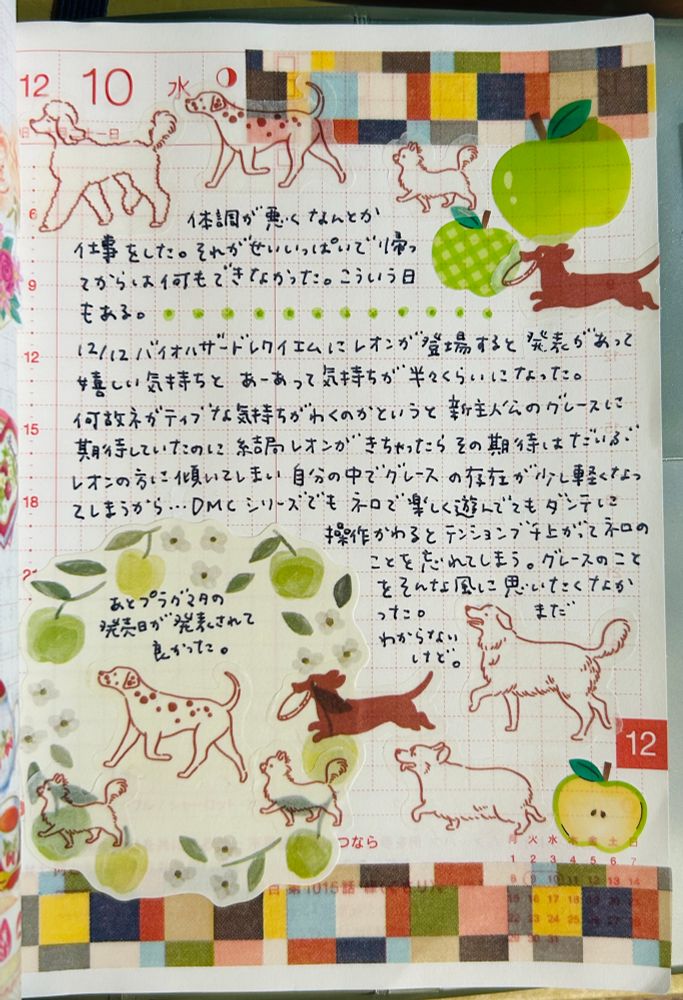 12 10 水
体調が悪くなんとか
仕事をした。それがせいいっぱいで帰っ
てからは何もできなかった。こういう日
もある。
12/12 バイオハザードレクイエムにレオンが登場すると発表があって
嬉しい気持ちと あーあって気持ちが半々くらいになった。
何故ネガティブな気持ちがわくのかというと 新主人公のグレースに
期待していたのに 結局レオンがきちゃったらその期待はだいぶ
レオンの方に傾いてしまい 自分の中でグレースの存在が少し軽くなっ
てしまうから…DMCシリーズでも ネロで楽しく遊んでてもダンテに
操作かわると テンションブチ上がってネロの
ことを忘れてしまう。グレースのこと
をそんな風に思いたくなか
った。 まだ
わからない
けど。
あとプラグマタの
発売日が発表されて
良かった。
6
9
12
15
18
21
12
つなら
第1015話
月 火 水 木 金 土 日
1 2 3 4 5 6 7
8 9 10 11 12 13 14
15 16 17 18 19 20 21
22 23 24 25 26 27 28
29 30 31